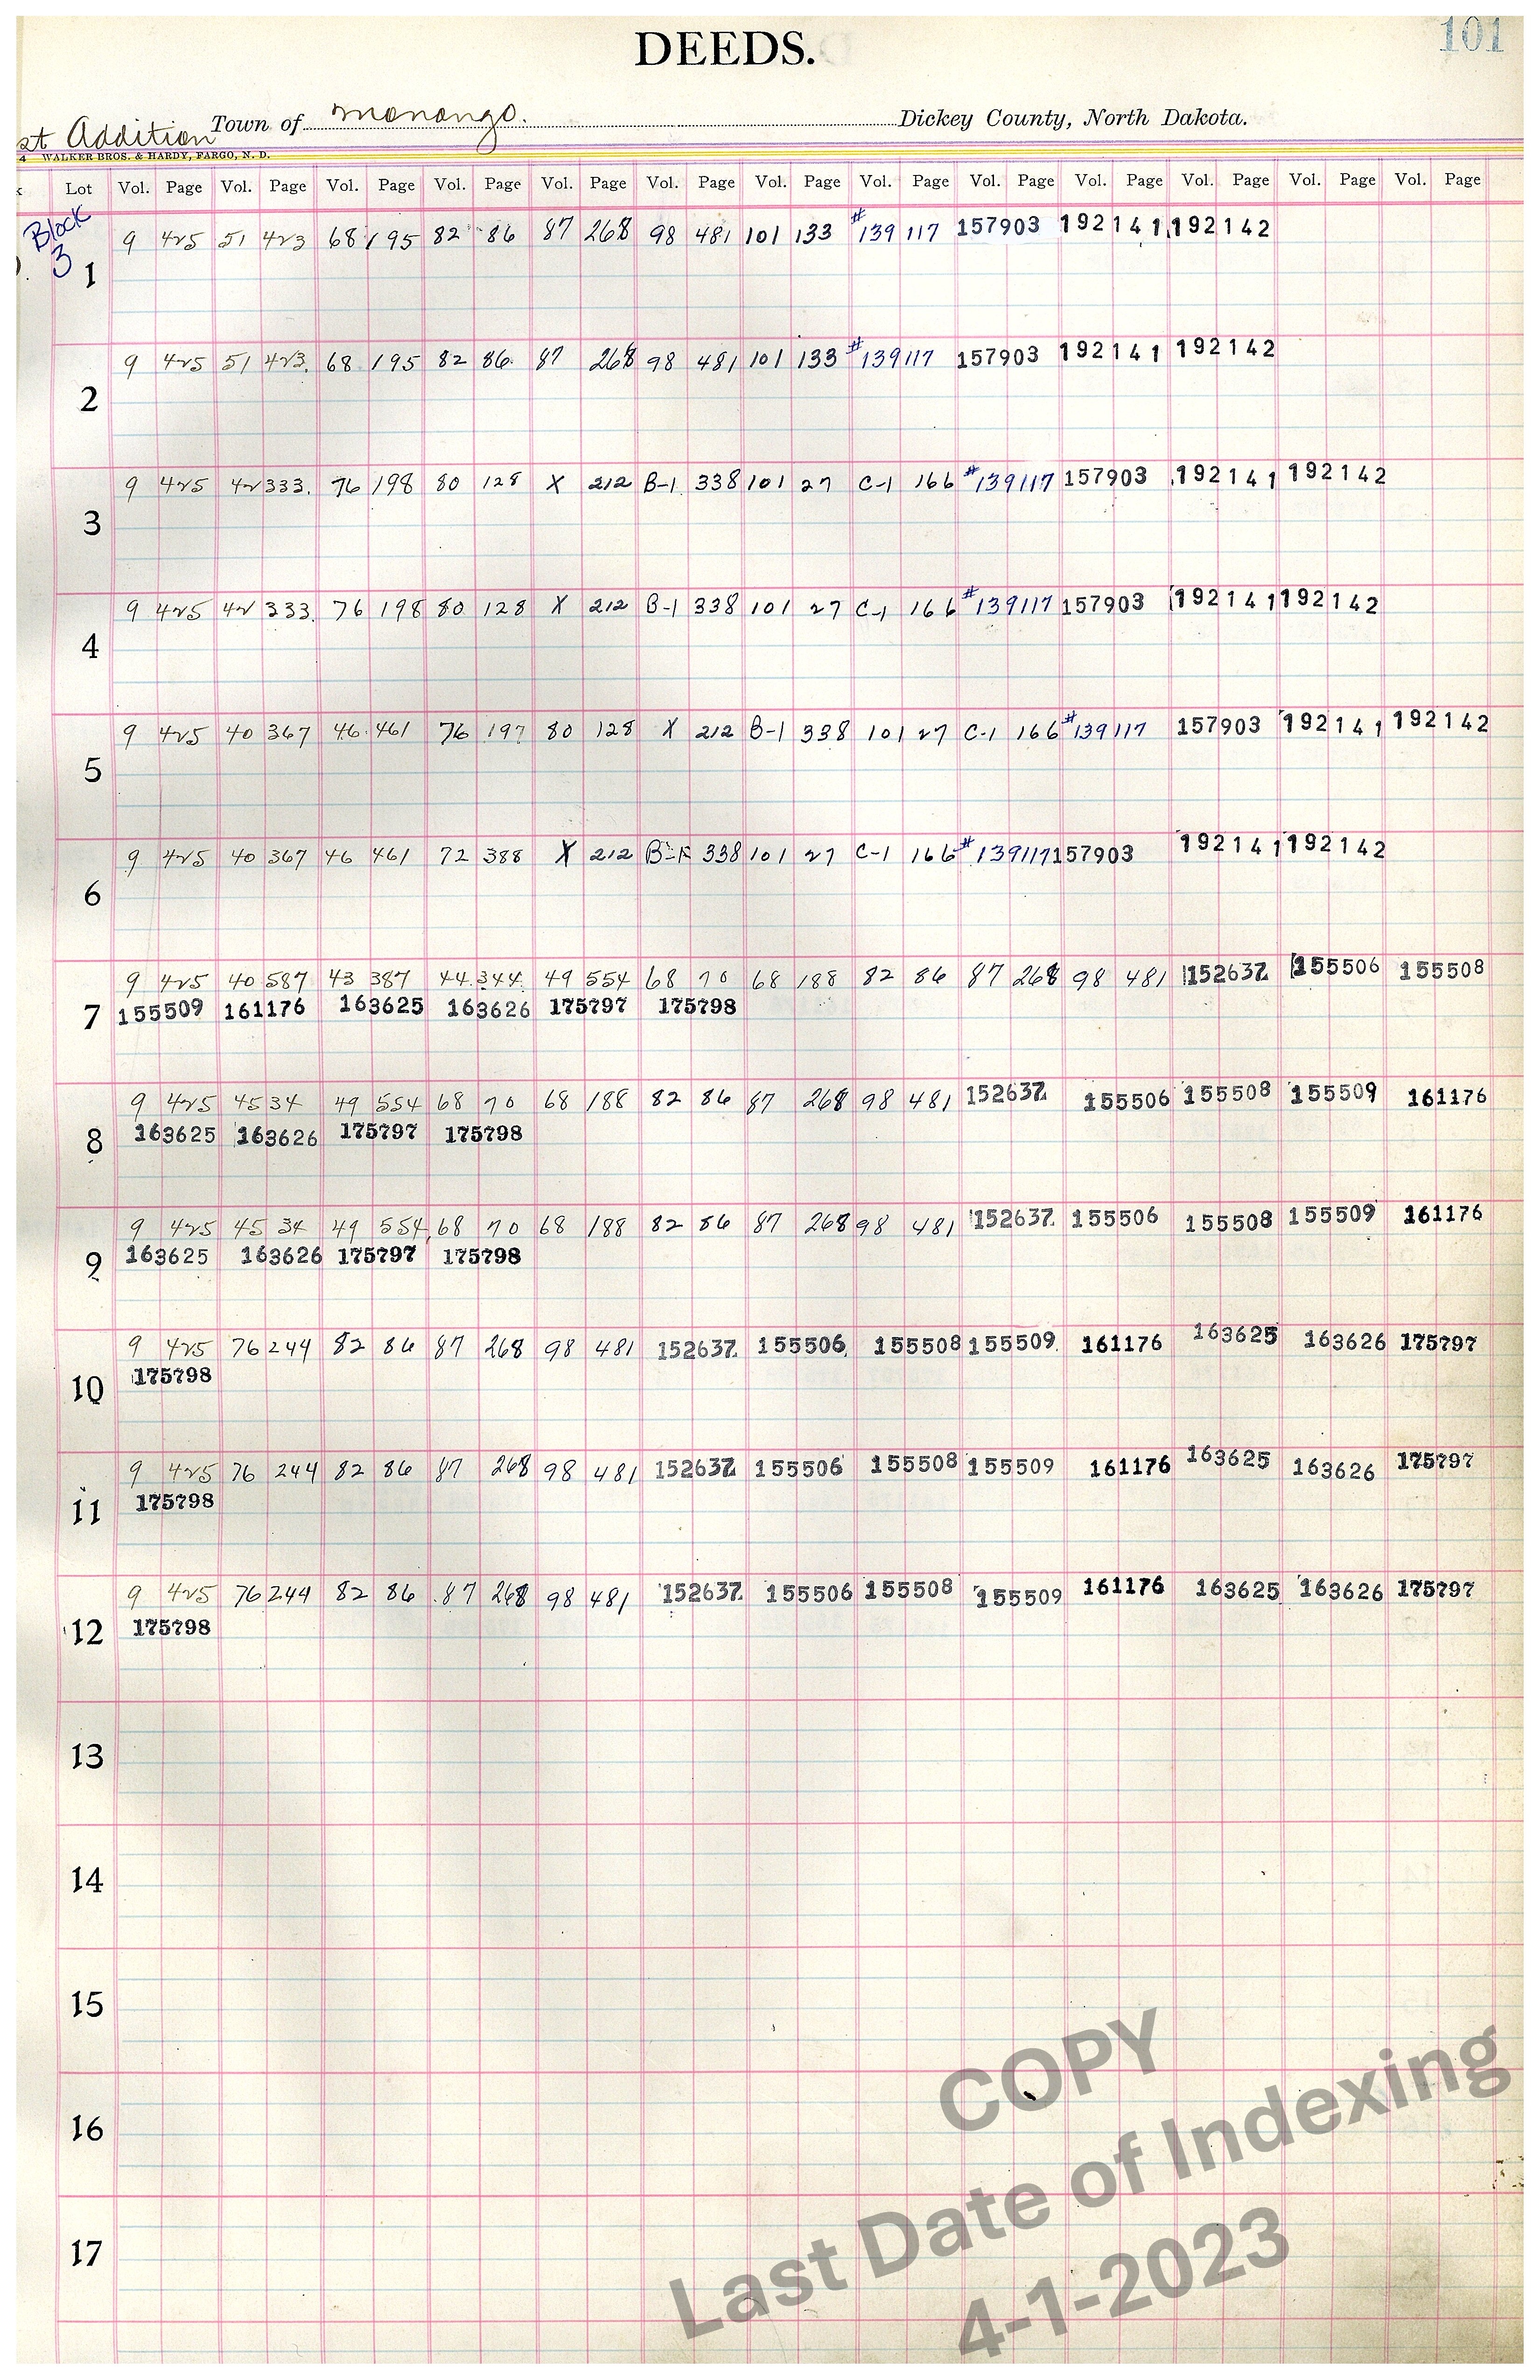 101
DEEDS.
st Addition Town of Monango. Dickey County, North Dakota.
4 WALKER BROS. & HARDY, FARGO, N. D.
Lot Vol. Page Vol. Page Vol. Page Vol. Page Vol. Page Vol. Page Vol. Page Vol. Page Vol. Page Vol. Page Vol. Page Vol. Page Vol. Page
Block
3
9 425 51 423 68 195 82 86 87 268 98 481 101 133 #139117 157903 192141 192142
1
9 425 51 423 68 195 82 86 87 268 98 481 101 133 #139117 157903 192141 192142
2
9 425 42 333 76 198 80 128 X 212 B-1 338 101 27 C-1 166 #139117 157903 192141 192142
3
9 425 42 333 76 198 80 128 X 212 B-1 338 101 27 C-1 166 #139117 157903 192141 192142
4
9 425 40 367 46 461 76 197 80 128 X 212 B-1 338 101 27 C-1 166 #139117 157903 192141 192142
5
9 425 40 367 46 461 72 388 X 212 338 101 27 C-1 166 #139117 157903 192141 192142
6
9 425 40 587 43 387 44 344 49 554 68 70 68 188 82 86 87 268 98 481 152637 155506 155508
7 155509 161176 163625 163626 175797 175798
9 425 45 34 49 554 68 70 68 188 82 86 87 268 98 481 152637 155506 155508 155509 161176
8 163625 163626 175797 175798
9 425 45 34 49 554 68 70 68 188 82 86 87 268 98 481 152637 155506 155508 155509 161176
9 163625 163626 175797 175798
9 425 76 244 82 86 87 268 98 481 152637 155506 155508 155509 161176 163625 163626 175797
10 175798
9 425 76 244 82 86 87 268 98 481 152637 155506 155508 155509 161176 163625 163626 175797
11 175798
9 425 76 244 82 86 87 268 98 481 152637 155506 155508 155509 161176 163625 163626 175797
12 175798
13
14
15
16
17
COPY
Last Date of Indexing
4-1-2023